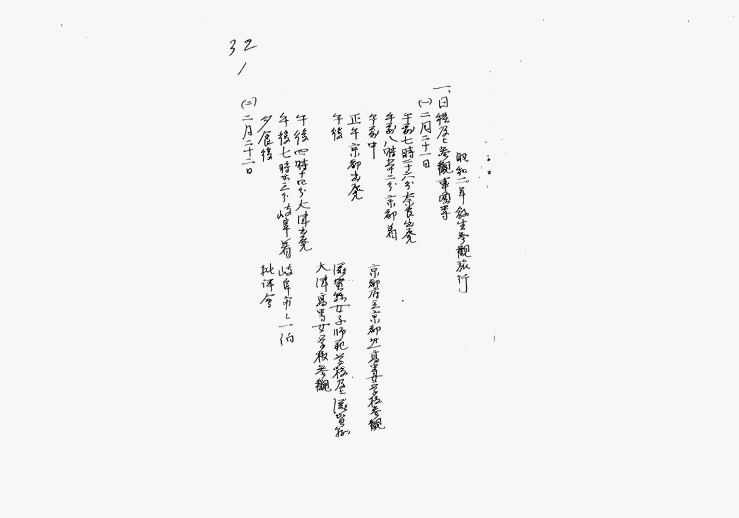 32
1
昭和二年 学生参観旅行
一、日程及ビ参観事項等
(一) 二月二十一日
午前七時二十六分奈良出発
午前八時 十二分京都着
午前中 京都府立京都第一高等女学校参観
正午京都出発
午後 滋賀縣女子師範学校及ビ滋賀縣
大津高等女学校参観
午後四時十四分大津出発
午後七時 三分岐阜着 岐阜市ニ一泊
夕食後 批評会
(二) 二月二十二日